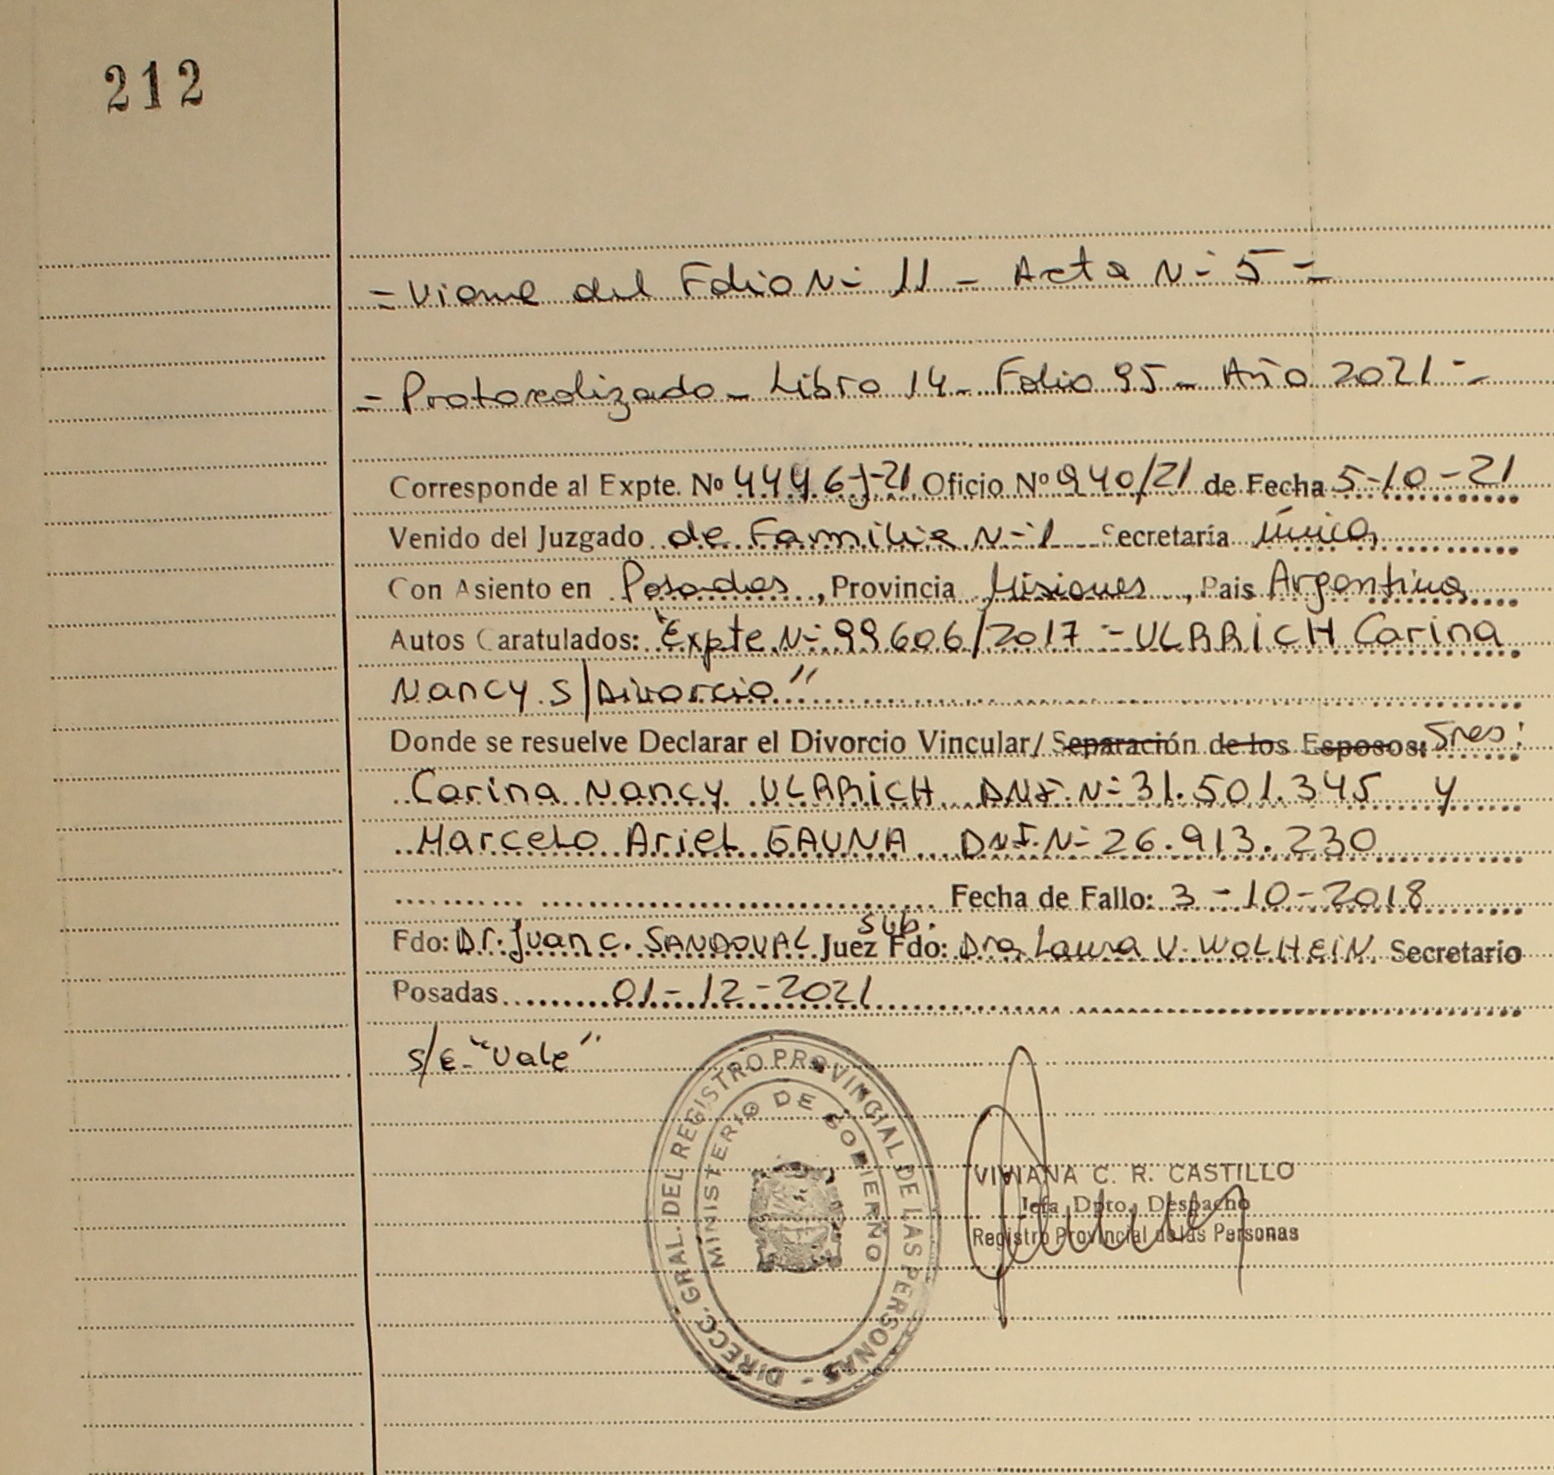 212
= Viene del Folio N- 11 - Acta N- 5 =
= Protocolizado - Libro 14 - Folio 95 - Año 2021 =
Corresponde al Expte. Nº 4446-J-21 Oficio Nº 940/21 de Fecha 5-10-21
Venido del Juzgado de Familia N-1 Secretaria Única
Con Asiento en Posadas, Provincia Misiones, Pais Argentina
Autos Caratulados: "Expte N- 99606/2017 - ULRRICH Carina
Nancy S/Divorcio"
Donde se resuelve Declarar el Divorcio Vincular/ Separación de los Esposos: Sres:
Carina Nancy ULRRICH DNI. N- 31.501.345 y
Marcelo Ariel GAUNA DNI. N- 26.913.230
Fecha de Fallo: 3-10-2018
Sub.
Fdo: Dr. Juan C. SANDOVAL Juez Fdo: Dra. Laura V. WOLHEIN. Secretario
Posadas 01-12-2021
s/e "Vale"
DIRECC. GRAL. DEL REGISTRO PROVINCIAL DE LAS PERSONAS -
MINISTERIO DE GOBIERNO
VIVIANA C. R. CASTILLO
Jefa Dpto. Despacho
Registro Provincial de las Personas